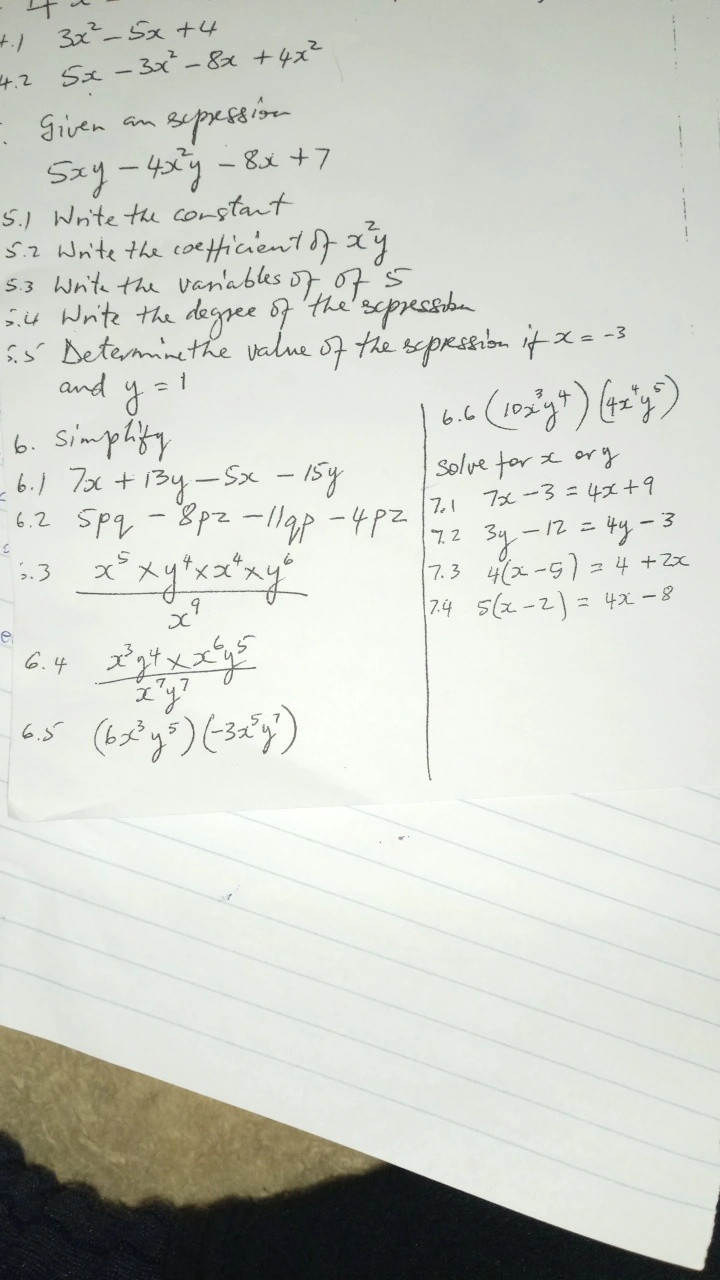 4.1 3x² – 5x + 4
4.2 5x – 3x² – 8x + 4x²
Given an expression
5xy – 4x²y – 8x + 7
5.1 Write the constant
5.2 Write the coefficient of x²y
5.3 Write the variables of of 5
5.4 Write the degree of the expression
5.5 Determine the value of the expression if x = –3
and y = 1
6. Simplify
6.1 7x + 13y – 5x – 15y
6.2 5pq – 8pz – 11qp – 4pz
6.3 x⁵ × y⁴ × x⁴ × y⁶
x⁹
6.4 x³y⁴ × x⁶y⁵
x⁷y⁷
6.5 (6x³y⁵)(–3x⁵y⁷)
6.6 (10x³y⁴)(4x⁴y⁵)
Solve for x or y
7.1 7x – 3 = 4x + 9
7.2 3y – 12 = 4y – 3
7.3 4(x – 5) = 4 + 2x
7.4 5(x – 2) = 4x – 8